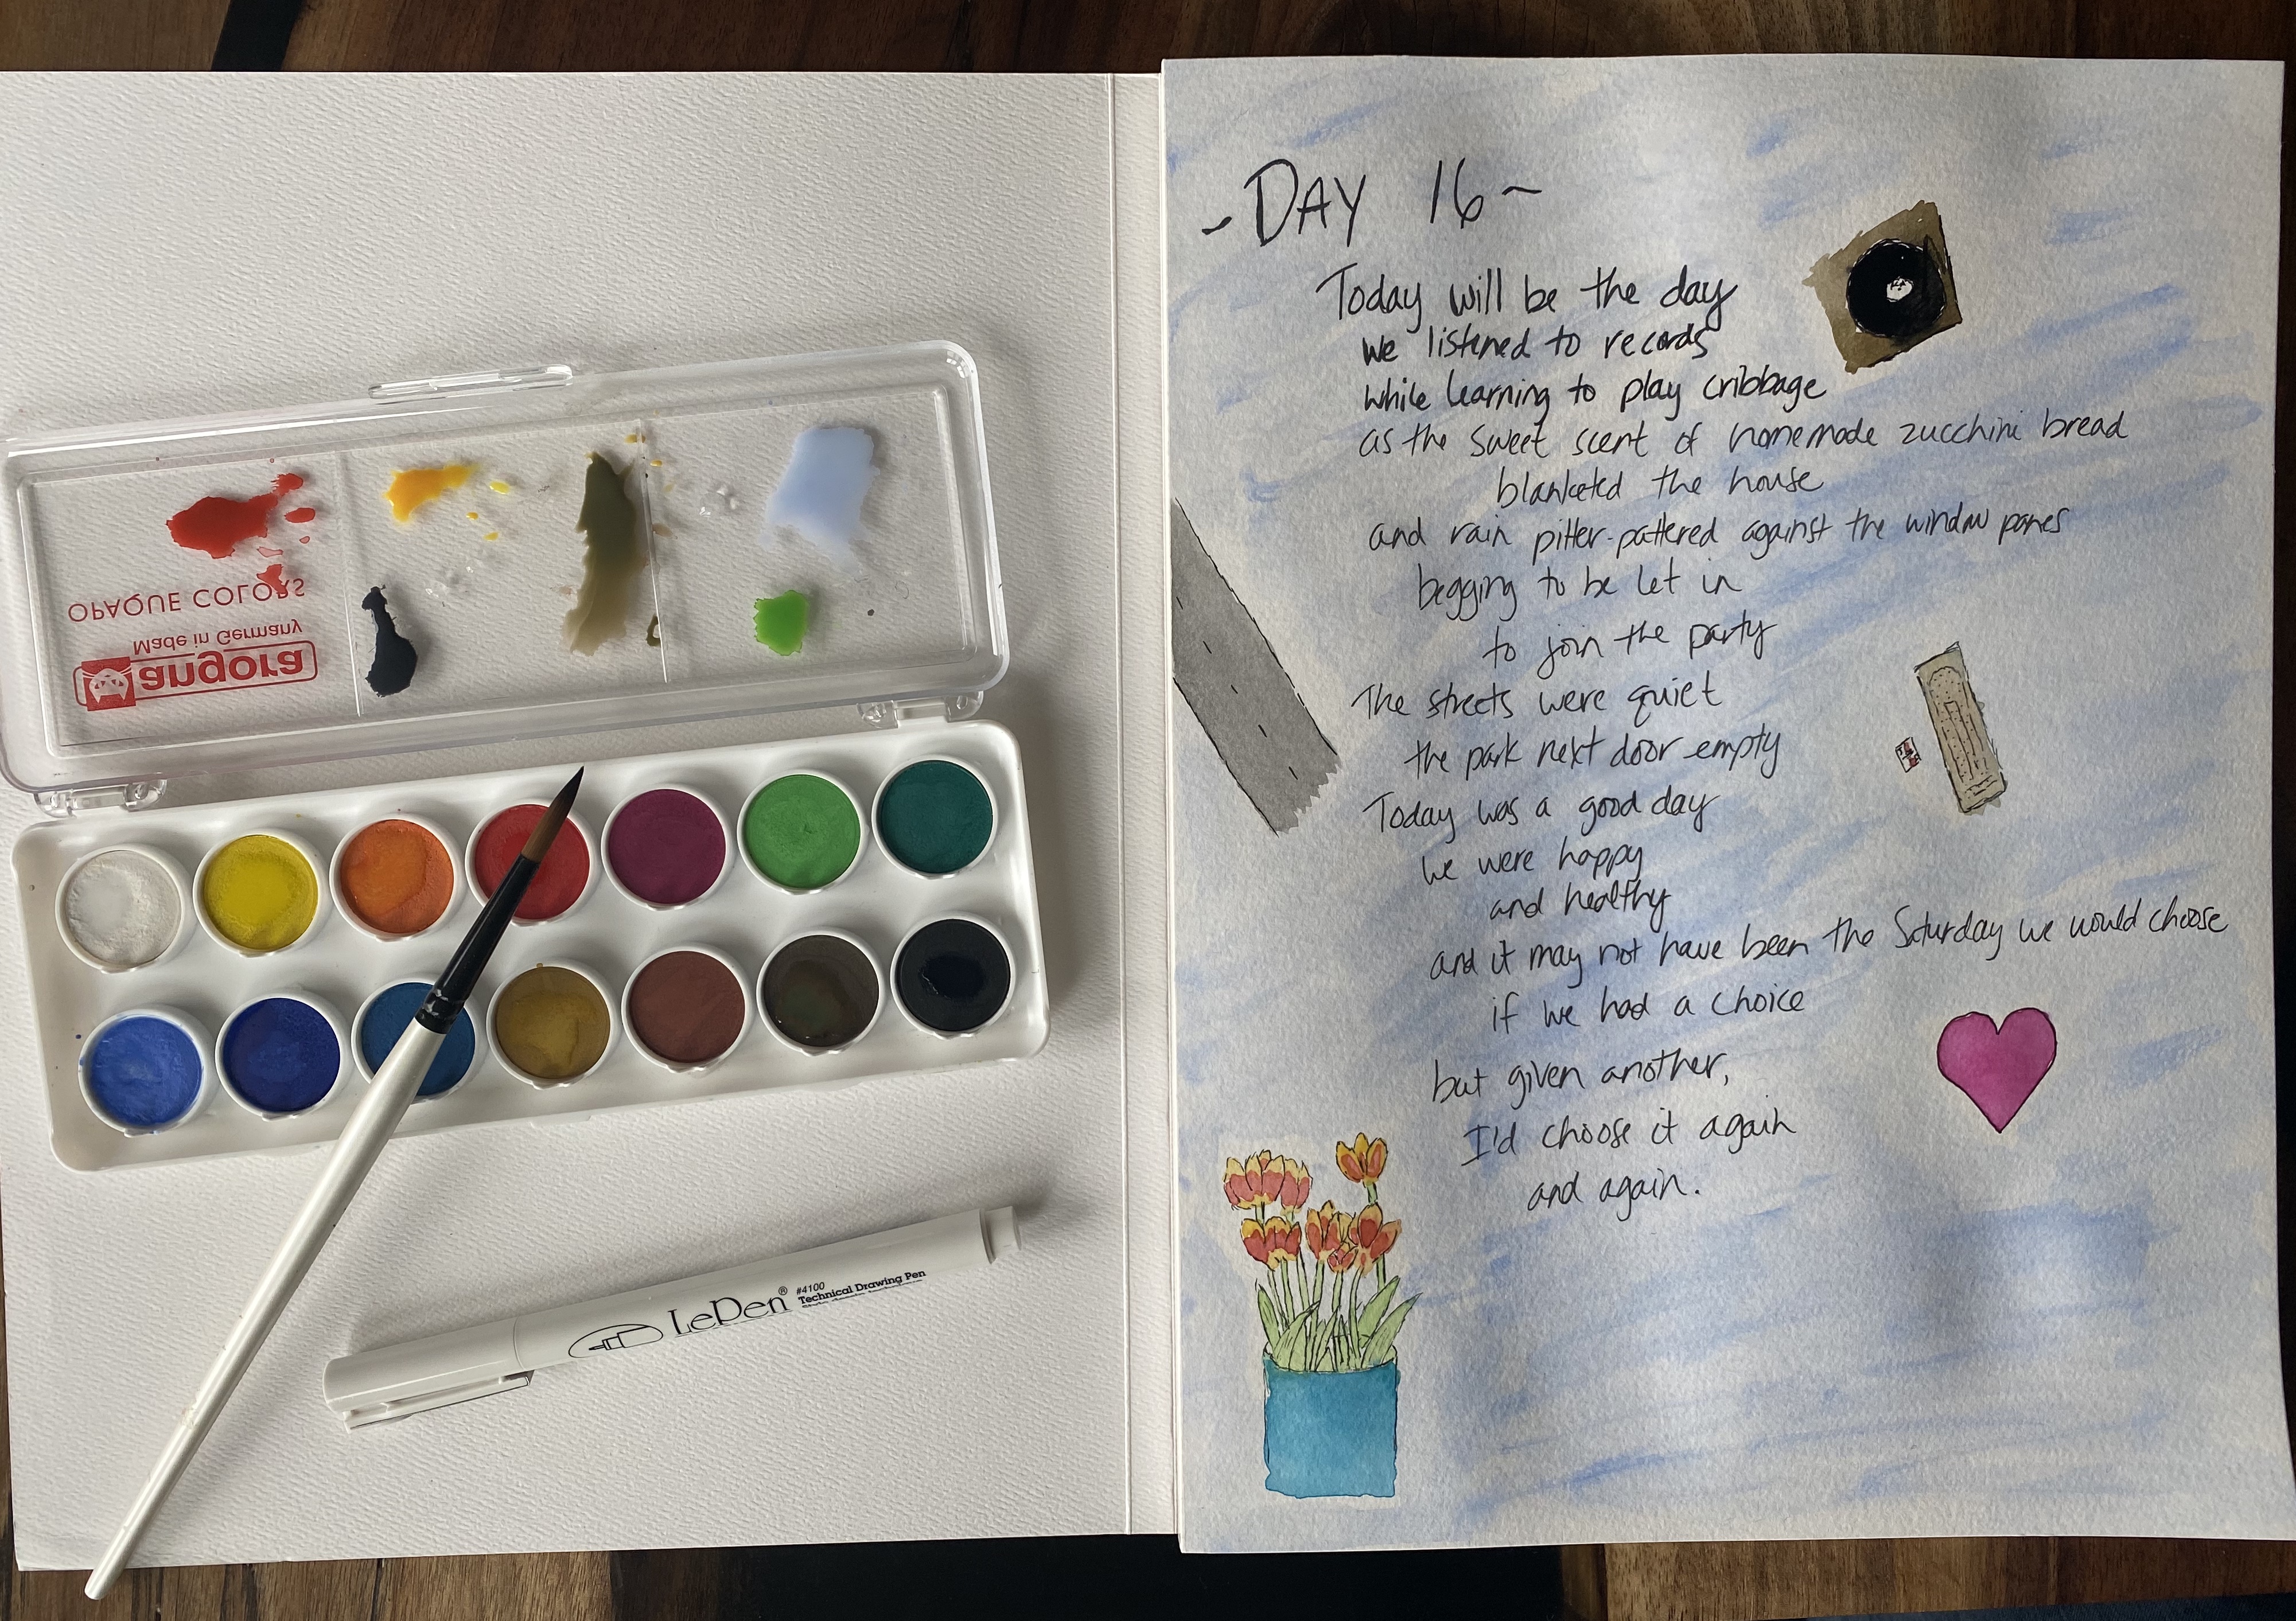 OPAQUE COLORS
Made in Germany
angora
LePen®
#4100
Technical Drawing Pen
~DAY 16~
Today will be the day
we listened to records
while learning to play cribbage
as the sweet scent of homemade zucchini bread
blanketed the house
and rain pitter-pattered against the window panes
begging to be let in
to join the party
The streets were quiet
the park next door empty
Today was a good day
we were happy
and healthy
and it may not have been the Saturday we would choose
if we had a choice
but given another,
I'd choose it again
and again.